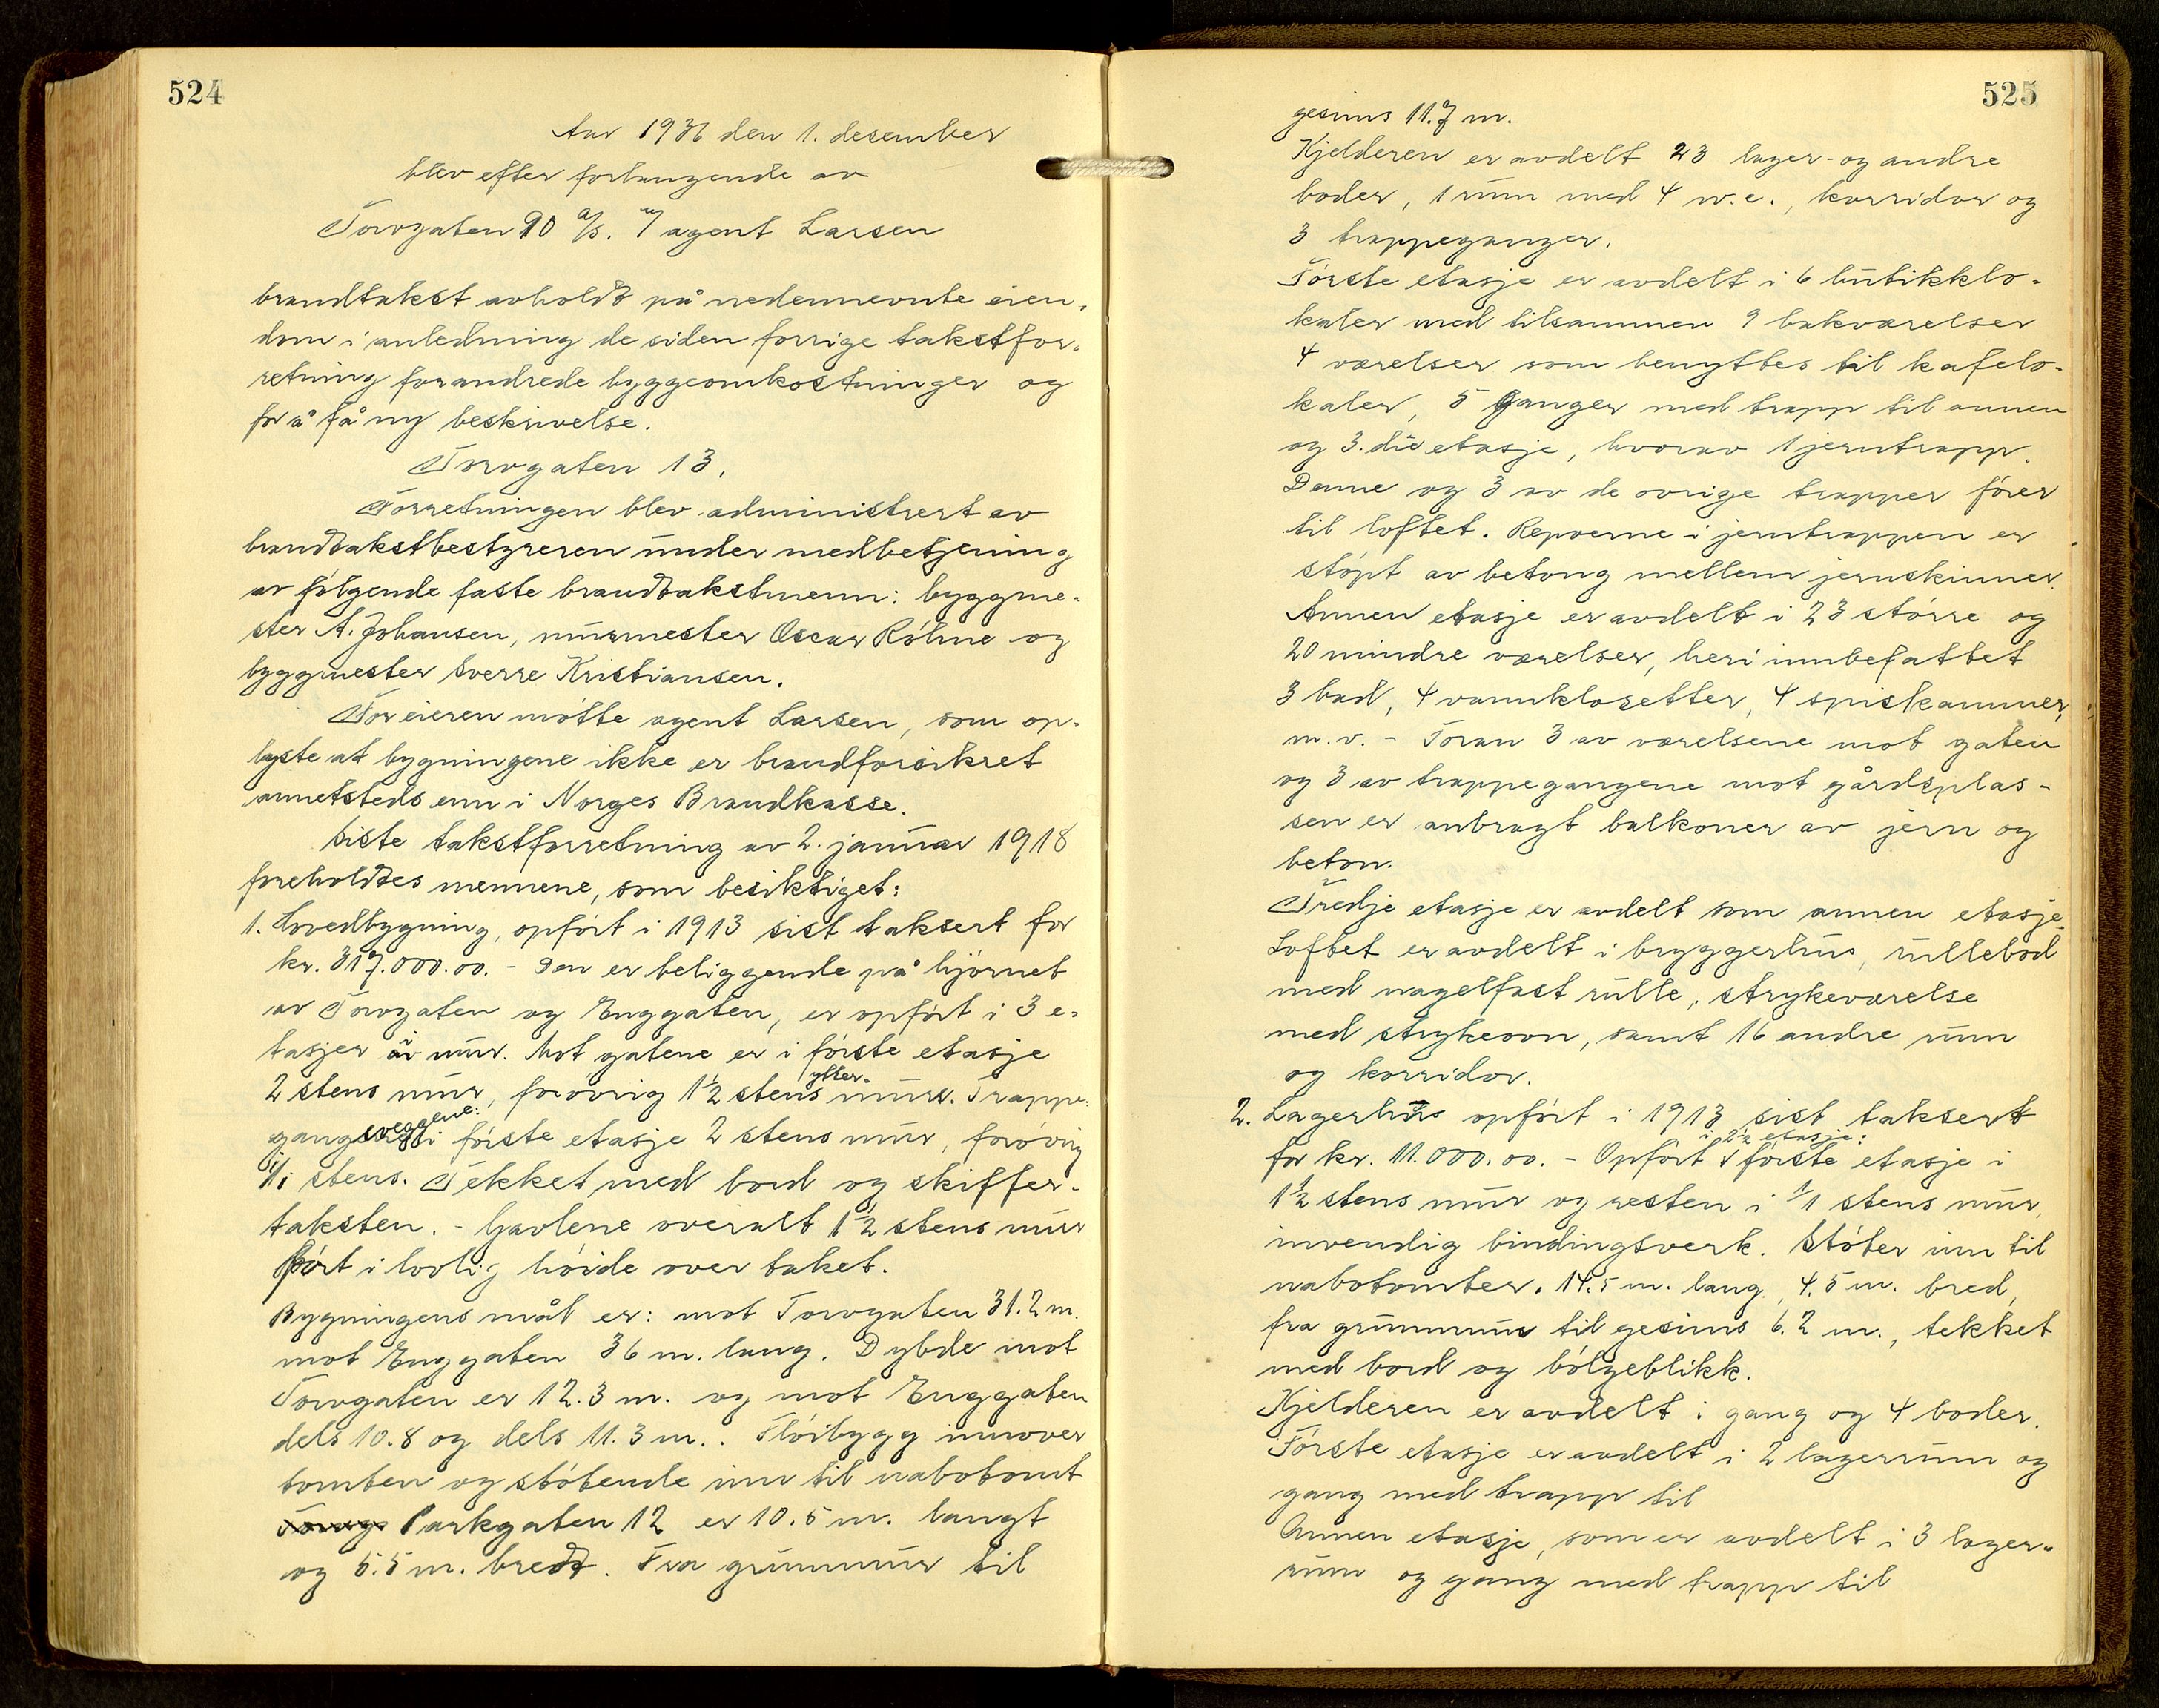 524
Aar 1936 den 1. desember
blev efter forlangende av
Torvgaten 90 a/s. v/ agent Larsen
brandtakst avholdt på nedennevnte eien-
dom i anledning de siden forrige takstfor-
retning forandrede byggeomkostninger og
for å få ny beskrivelse.
Torvgaten 13.
Forretningen blev administrert av
brandtakstbestyreren under medbetjening
av følgende faste brandtakstmenn: byggme-
ster A. Johansen, murmester Oscar Røhne og
byggmester Sverre Kristiansen.
For eieren møtte agent Larsen, som op-
lyste at bygningene ikke er brandforsikret
annetsteds enn i Norges Brandkasse.
Siste takstforretning av 2. januar 1918
foreholdtes mennene, som besiktiget:
1. Hovedbygning, opført i 1913 sist taksert for
kr. 317.000.00. - Den er beliggende på hjørnet
av Torvgaten og Enggaten, er opført i 3 e-
tasjer i mur. Mot gatene er i første etasje
2 stens mur, forøvrig 1½ stens ytter- mur. Trappe-
gangsveggene: i første etasje 2 stens mur, forøvrig
1/1 stens. Tekket med bord og skiffer-
taksten. - Gavlene overalt 1½ stens mur
ført i lovlig høide over taket.
Bygningens mål er: mot Torvgaten 31.2 m.
mot Enggaten 36 m. lang. Dybde mot
Torvgaten er 12.3 m. og mot Enggaten
dels 10.8 og dels 11.3 m.. Fløibygg innover
tomten og støtende inn til nabotomt
Torvg Parkgaten 12 er 10.5 m. langt
og 5.5 m. bredt. Fra grunnmur til
525
gesims 11.7 m.
Kjelderen er avdelt 23 lager- og andre
boder, 1 rum med 4 w.c., korridor og
3 trappeganger.
Første etasje er avdelt i 6 butikklo-
kaler med tilsammen 9 bakværelser
4 værelser som benyttes til kafelo-
kaler, 5 ganger med trapp til annen
og 3.die etasje, hvorav 1 jerntrapp.
Denne og 3 av de øvrige trapper fører
til loftet. Reposerne i jerntrappen er
støpt av betong mellem jernskinner.
Annen etasje er avdelt i 23 større og
20 mindre værelser, heri innbefattet
3 bad, 4 vannklosetter, 4 spiskammer,
m.v. - Foran 3 av værelsene mot gaten
og 3 av trappegangene mot gårdsplas-
sen er anbragt balkoner av jern og
beton.
Tredje etasje er avdelt som annen etasje.
Loftet er avdelt i bryggerhus, rullebod
med nagelfast rulle, strykeværelse
med strykeovn, samt 16 andre rum
og korridor.
2. Lagerhus opført i 1913 sist taksert
for kr. 11.000.00. - Opført i 2½ etasje: første etasje i
1½ stens mur og resten i 1/1 stens mur,
invendig bindingsverk. Støter inn til
nabotomter. 14.5 m. lang, 4.5 m. bred,
fra grunnmur til gesims 6.2 m., tekket
med bord og bølgeblikk.
Kjelderen er avdelt i gang og 4 boder.
Første etasje er avdelt i 2 lagerrum og
gang med trapp til
Annen etasje, som er avdelt i 3 lager-
rum og gang med trapp til